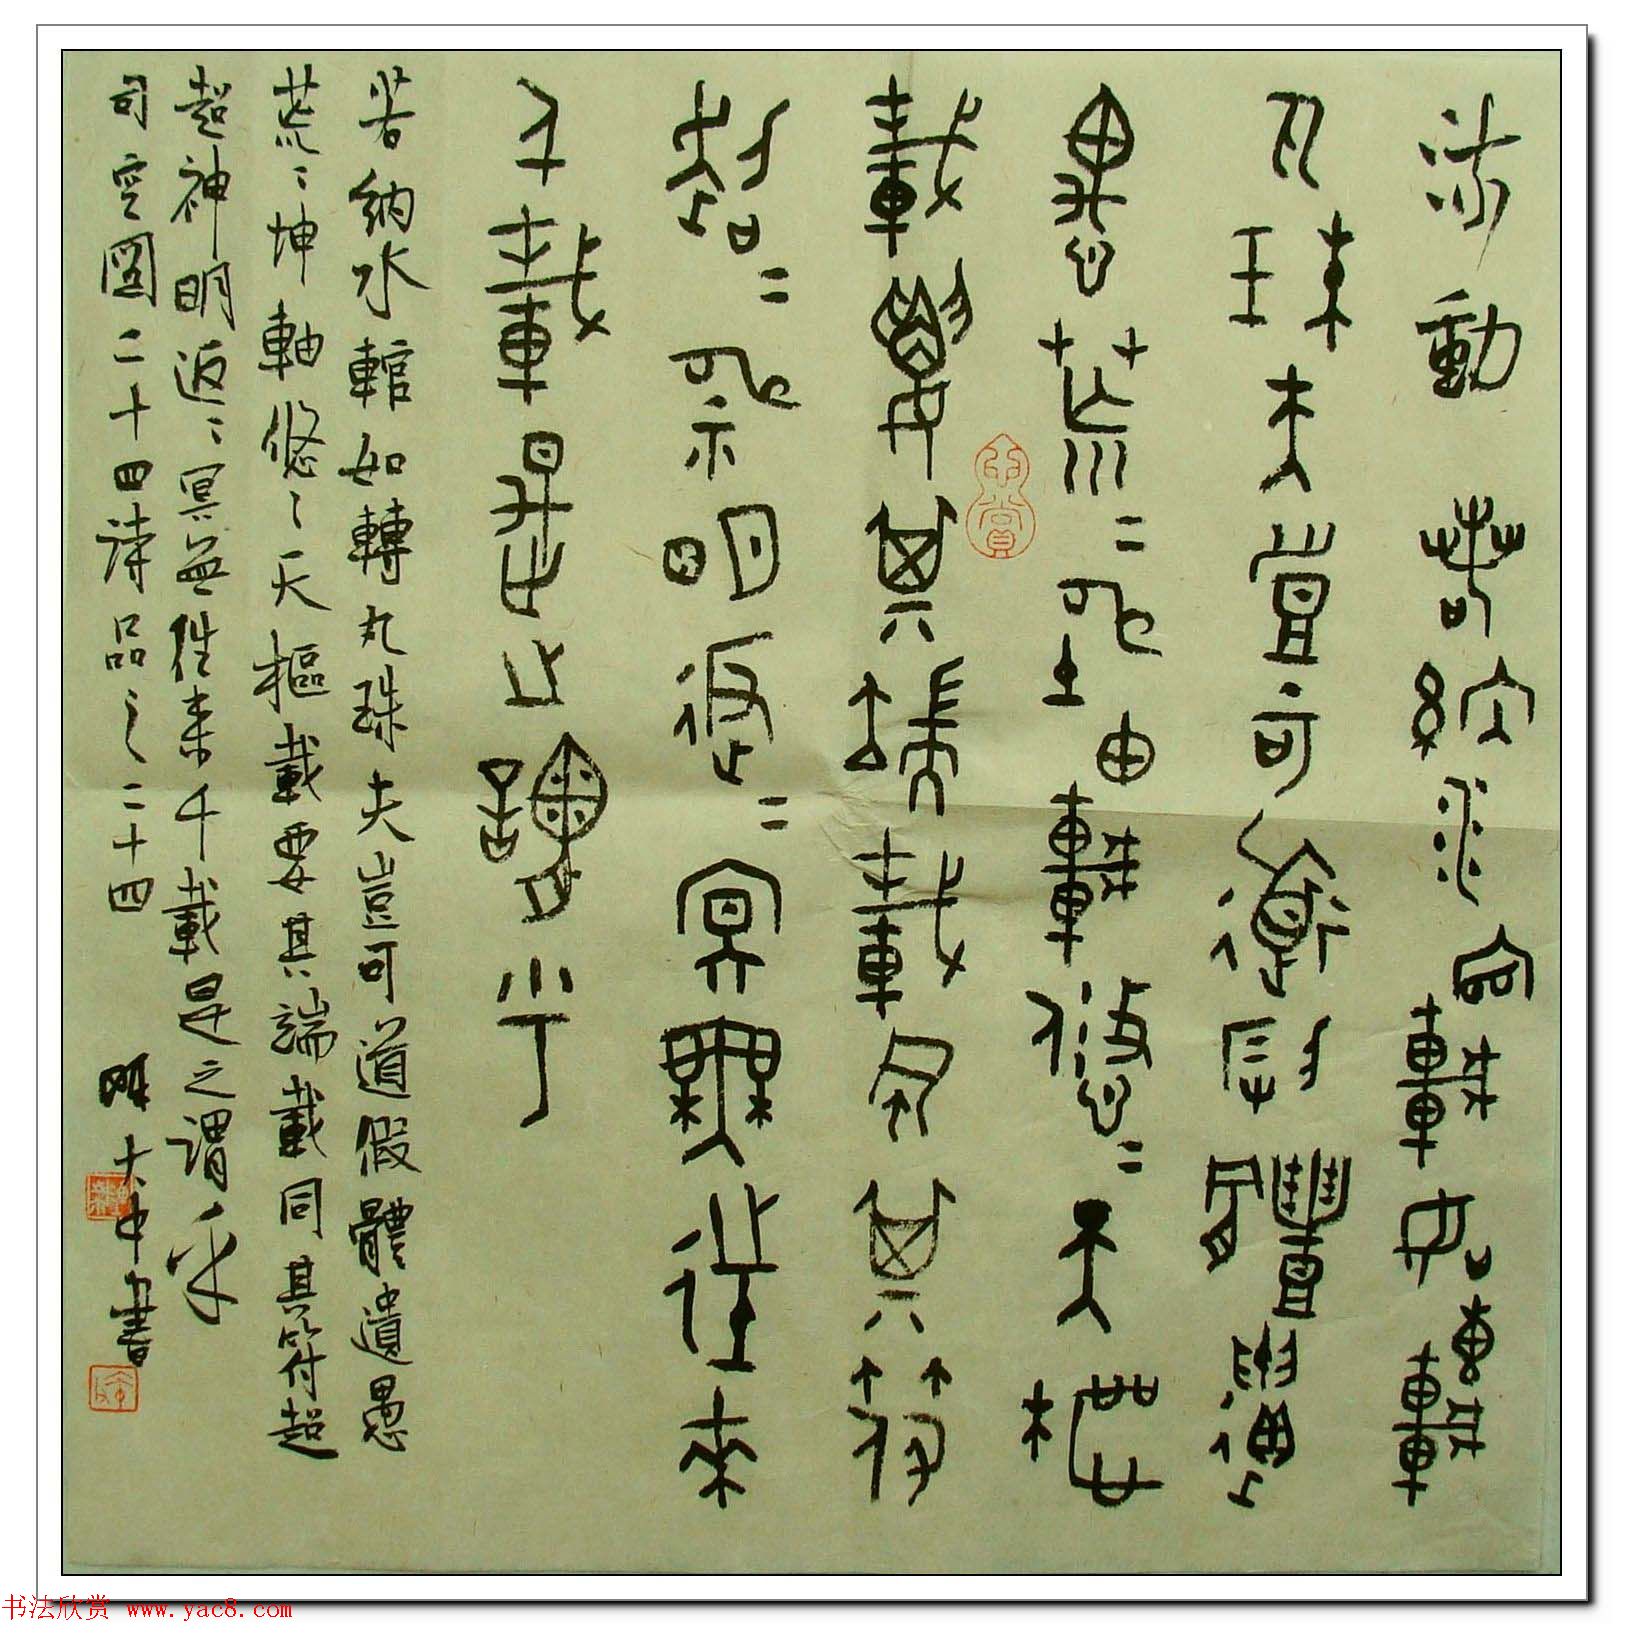 流動 若納水輨如轉
丸珠夫豈可道假體遺
愚荒〻坤軸悠〻天樞
載要其端載同其符
超〻神明返〻冥無往來
千載是之謂乎
若納水輨如轉丸珠夫豈可道假體遺愚
荒〻坤軸悠〻天樞載要其端載同其符超
超神明返〻冥無往來千載是之謂乎
司空圖二十四詩品之二十四 大申書
书法欣赏 www.yac8.com